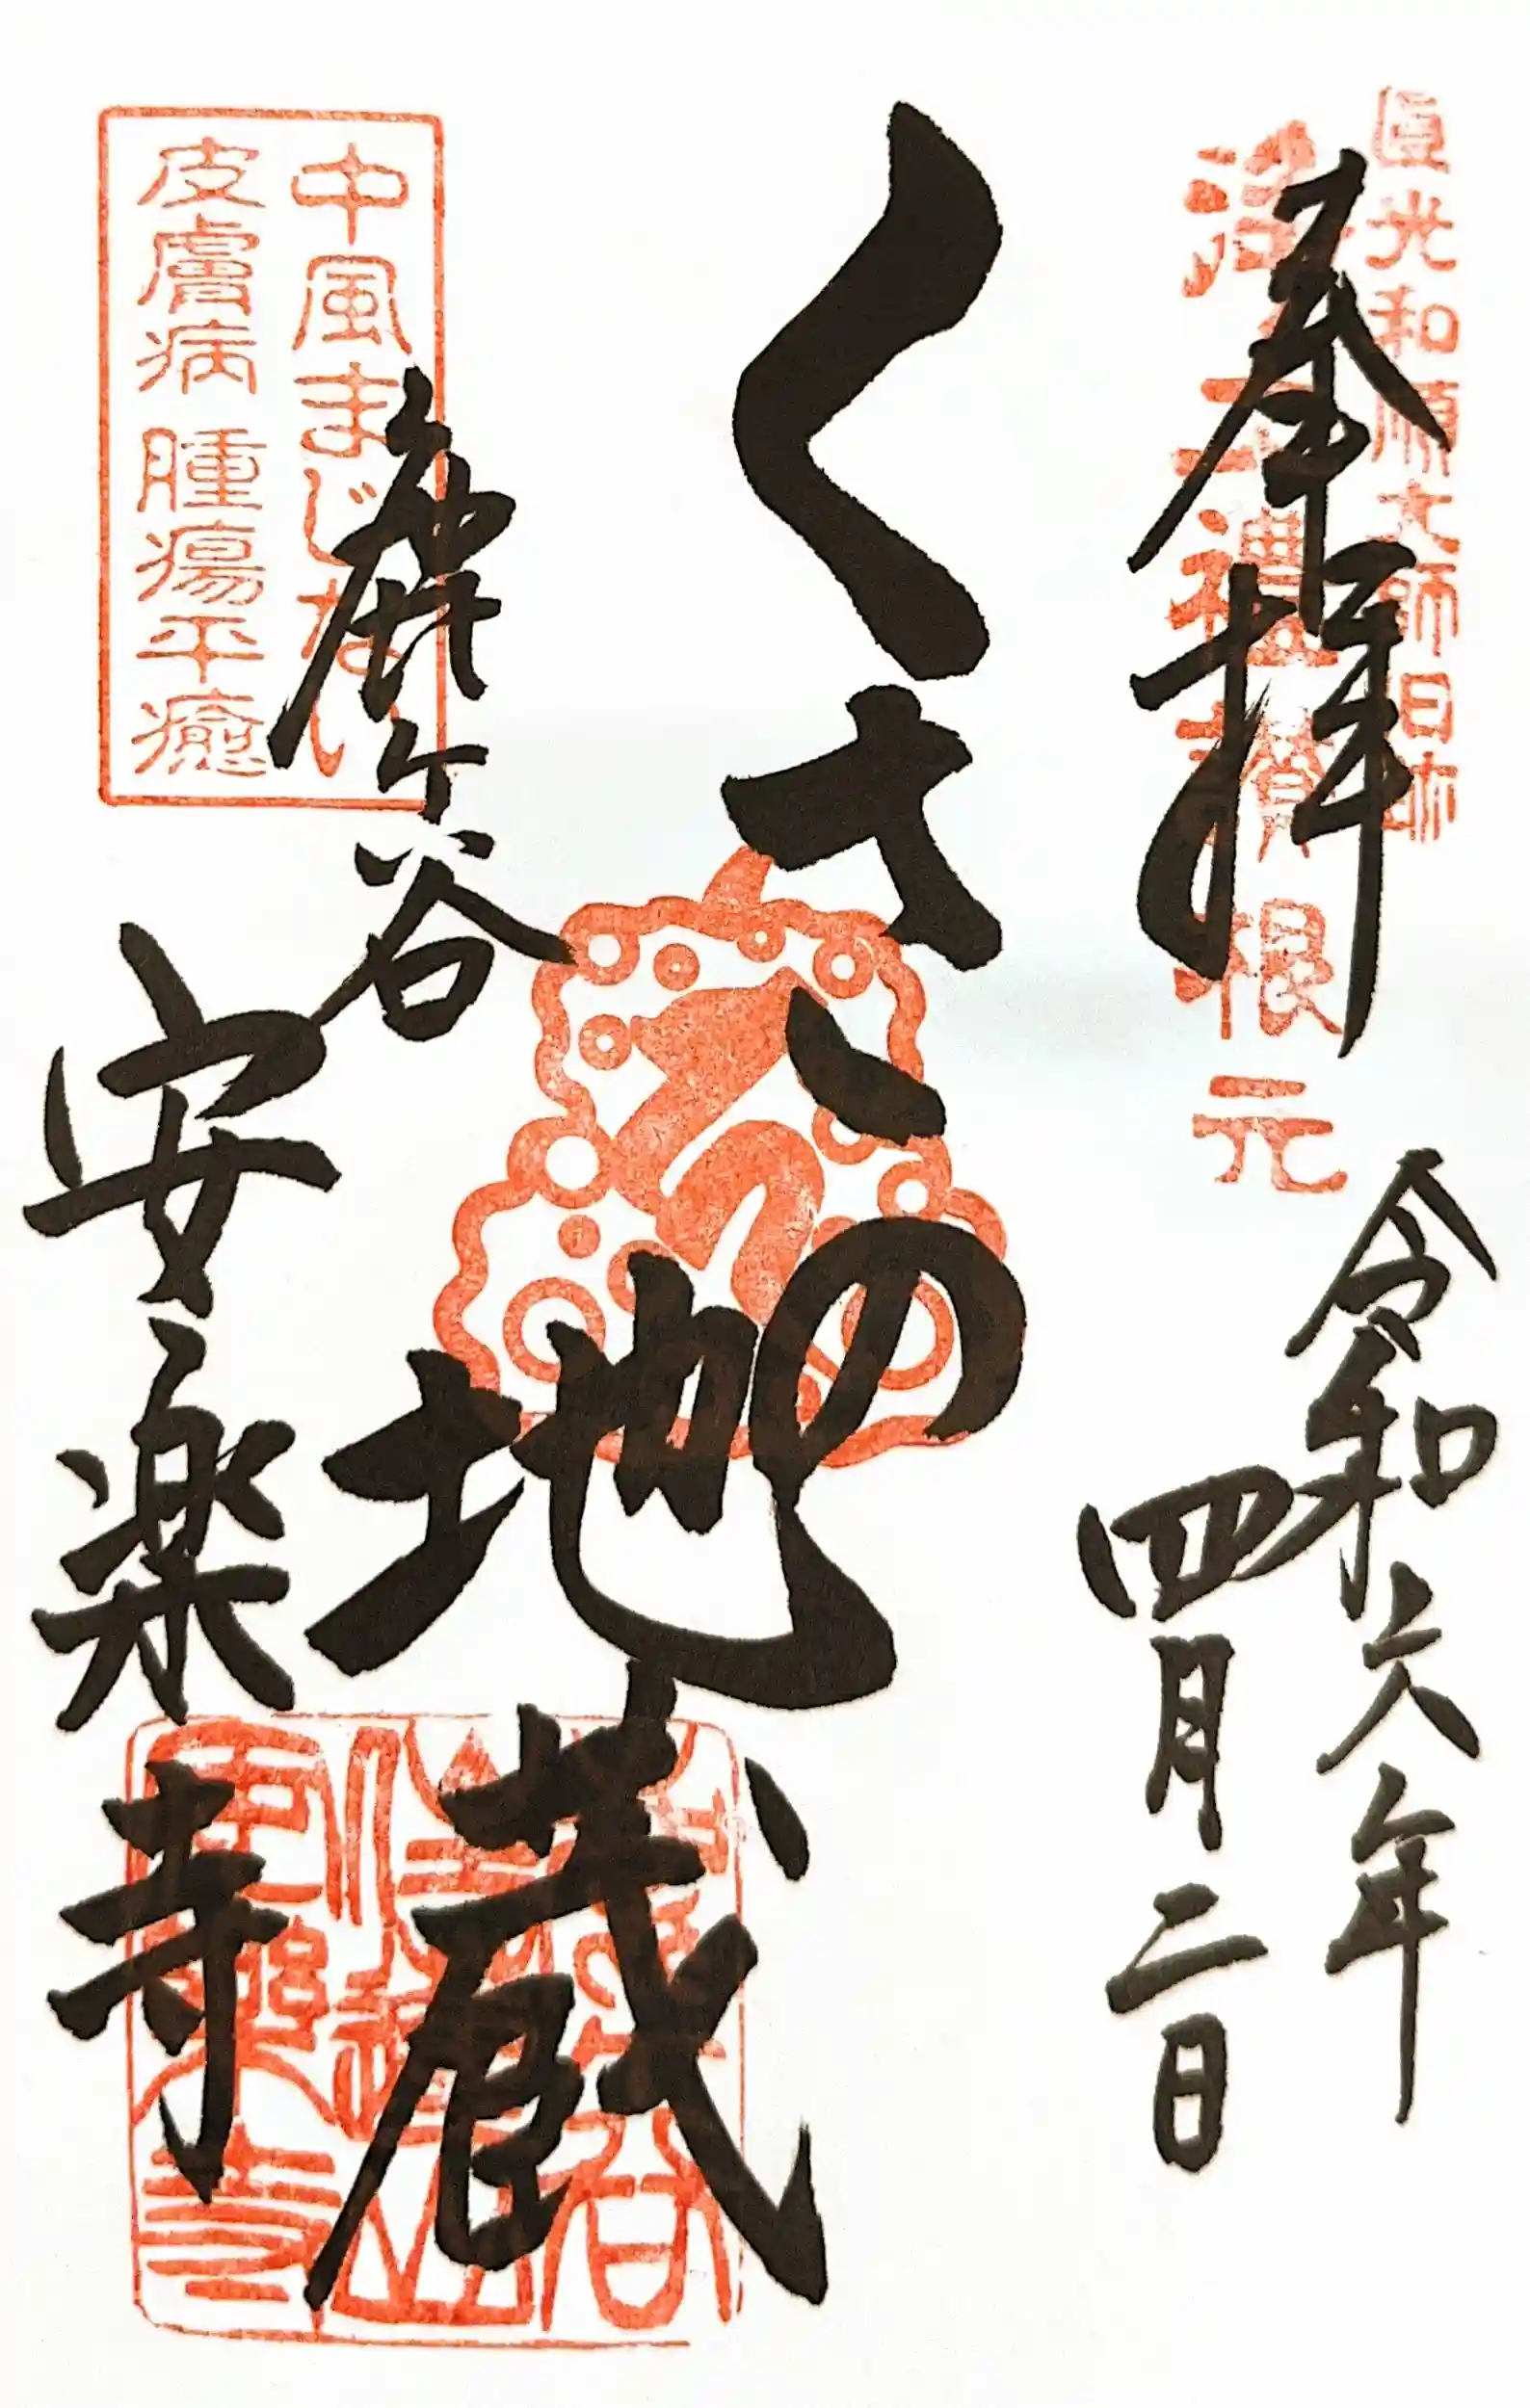 圓光和順大師旧跡
浄土礼讃根元
奉拝
令和六年
四月二日
くさゝの地蔵
中風まじない
皮膚病 腫瘍平癒
鹿ケ谷
安楽寺